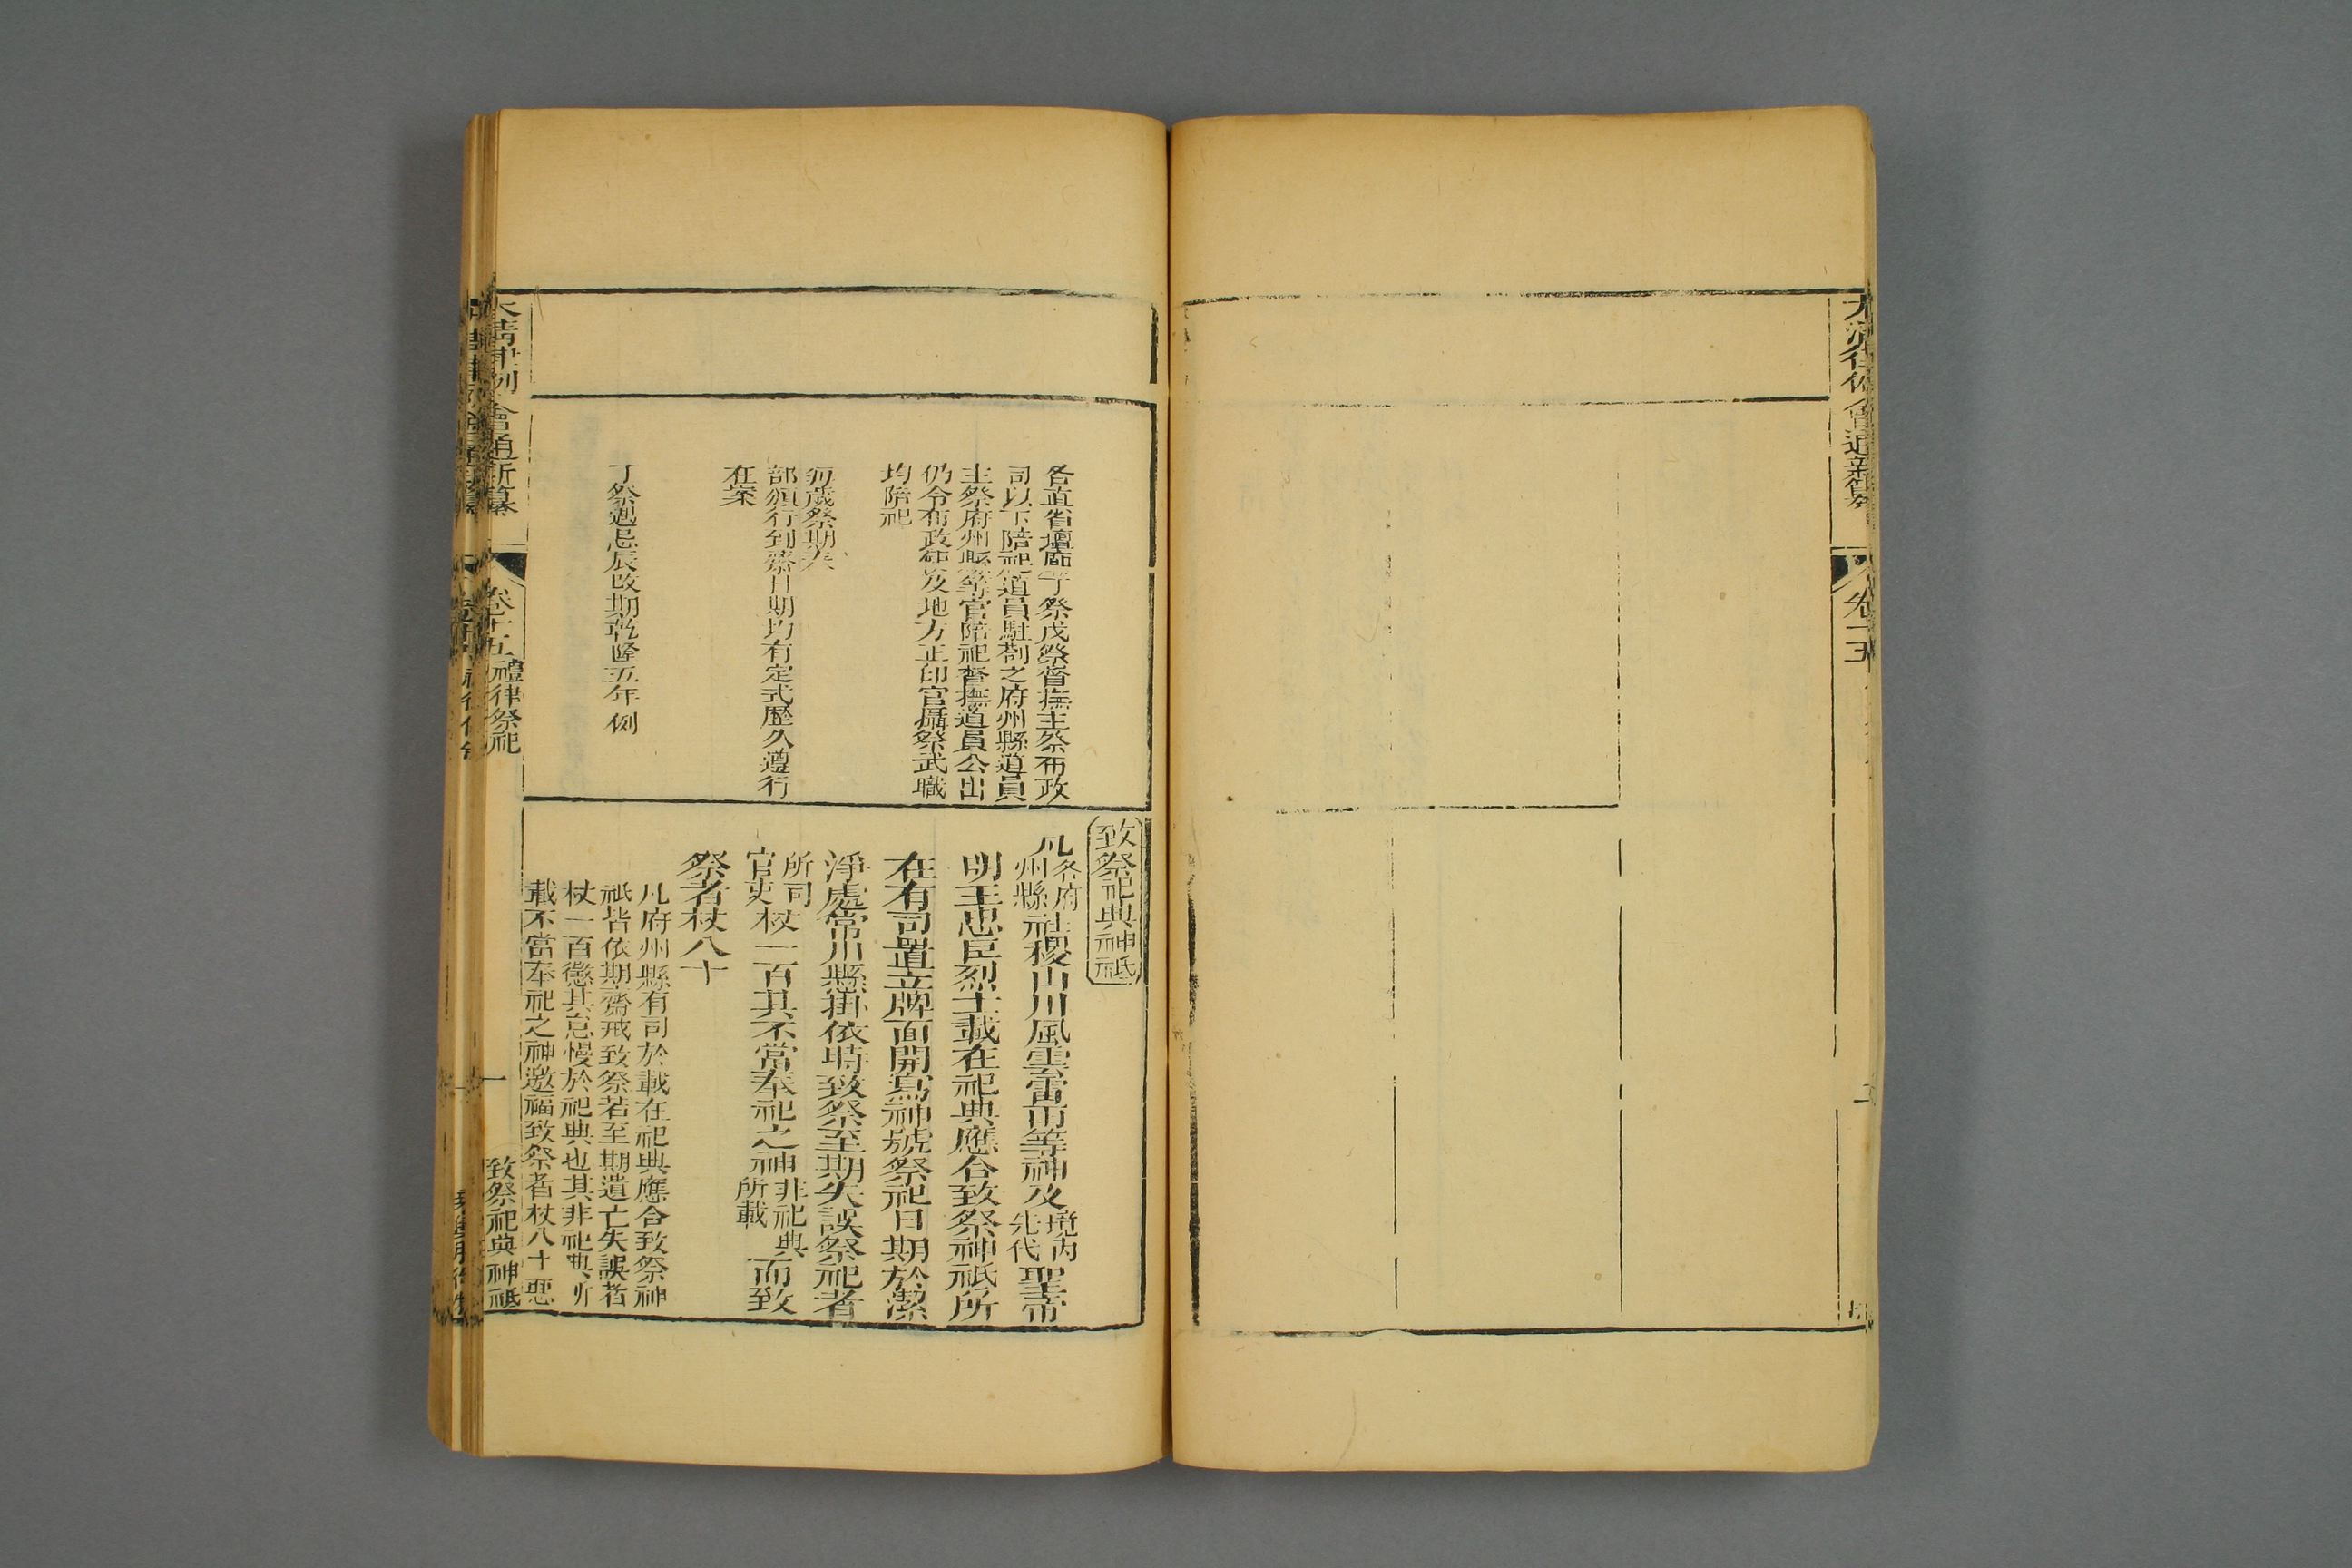 大清律例會通新纂
卷二十五
各直省壇廟丁祭戊祭督撫主祭布政
司以下陪祀道員駐劄之府州縣道員
主祭府州縣等官陪祀督撫道員公出
仍令布政使及地方正印官攝祭武職
均陪祀
每歲祭期禮
部頒行到齋日期均有定式歷久遵行
在案
丁祭遇忌辰改期乾隆五年例
致祭祀典神祗
凡各府州縣社稷山川風雲雷雨等神及境內先代聖帝
明王忠臣烈士載在祀典應合致祭神祗所
在有司置立牌面開寫神號祭祀日期於潔
淨處常川懸掛依時致祭至期失誤祭祀者
所司官吏杖一百其不當奉祀之神非祀典所載而致
祭者杖八十
凡府州縣有司於載在祀典應合致祭神
祗皆依期齋戒致祭若至期遺亡失誤者
杖一百懲其怠慢於祀典也其非祀典所
載不當奉祀之神邀福致祭者杖八十惡
大清律例會通新纂
卷二十五
禮律祭祀
一
致祭祀典神祗